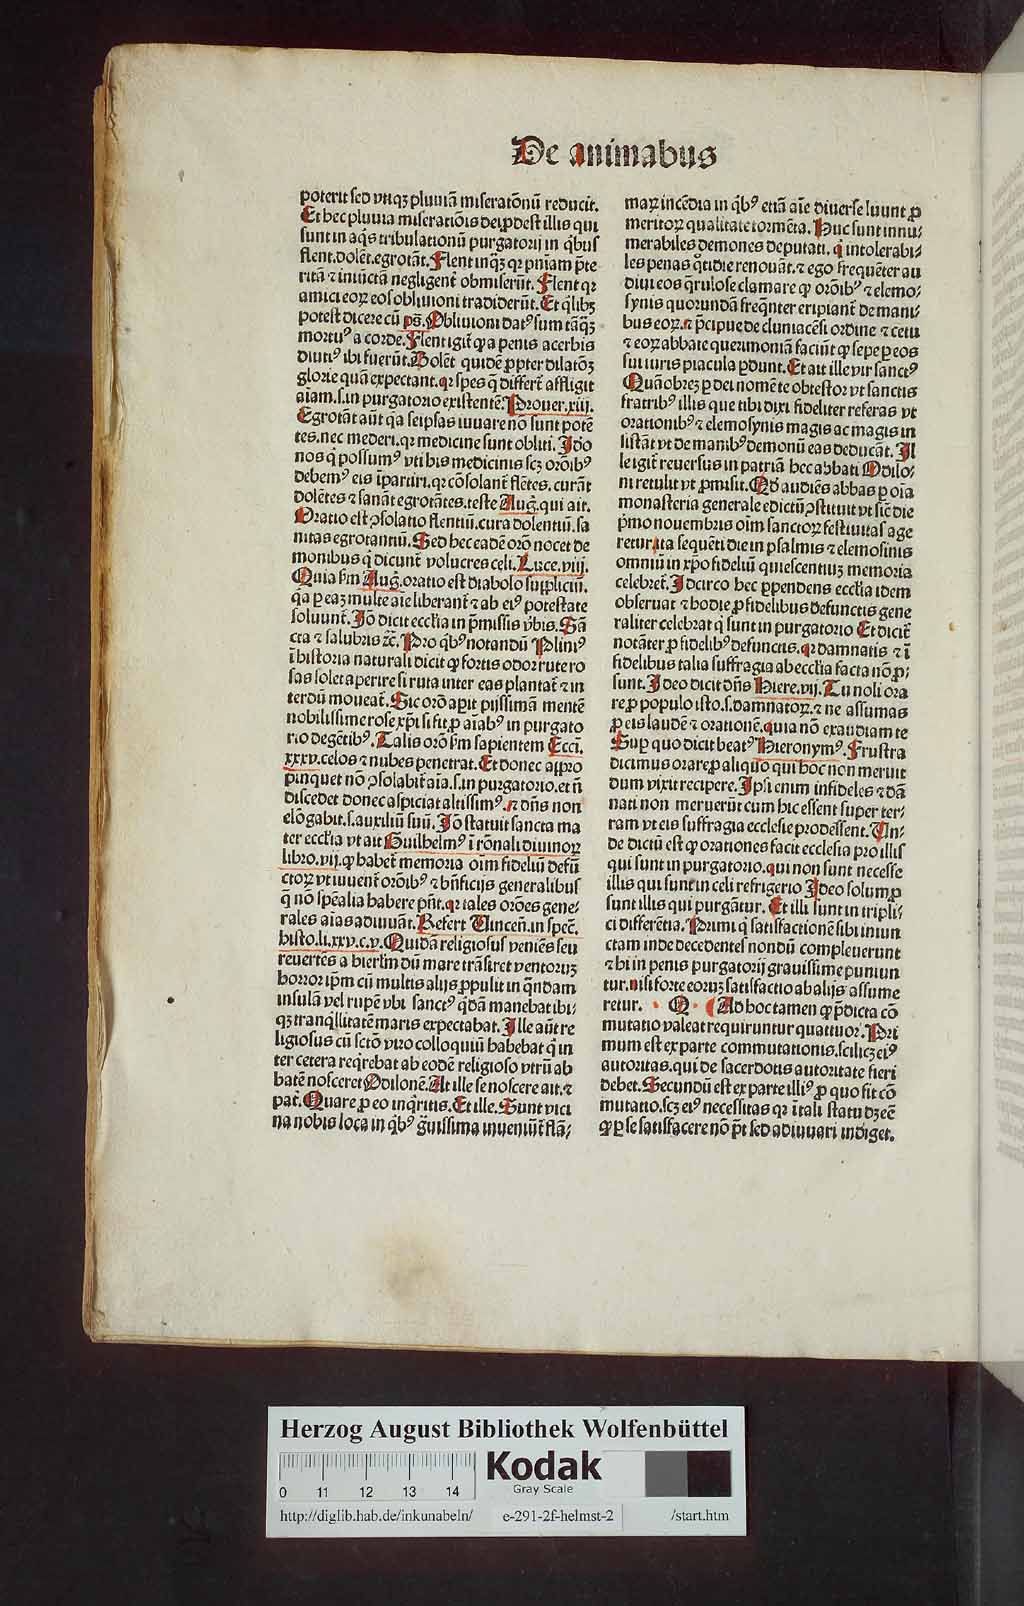 De animabus
poterit sed vtiqꝫ pluuiā miseratōnū reducit.
Et hec pluuia miseratiōis dei ꝓdest illis qui
sunt in aq̄s tribulationū purgatorij in qͥbus
flent.dolēt.egrotāt.Flent inqͣꝫ qꝛ pn̄iam p̄te
ritā ⁊ iniūctā negligent̄ obmiserūt. Flent qꝛ
amici eoꝝ eos obliuioni tradiderūt. Et qͥlibꝫ
potest dicere cū ps̄.Obliuioni datꝰ sum tāqͣꝫ
mortuꝰ a corde.Flent igit̄ qꝛ a penis acerbis
diutiꝰ ibi fuerūt.Dolēt quidē ꝓpter dilatōꝫ
glorie quā expectant.qꝛ spes q̄ differt̄ affligit
aīam.s.in purgatorio existentē.Prouer.xiij.
Egrotāt aūt qꝛ a seipsas iuuare nō sunt potē
tes.nec mederi.qꝛ medicine sunt obliti. Idō
nos qͥ possumꝰ vti his medicinis scꝫ orōibꝰ
debemꝰ eis īpartiri.qꝛ cōsolant̄ flētes. curāt
dolētes ⁊ sanāt egrotātes.teste Auḡ.qui ait.
Oratio est ↄsolatio flentiū.cura dolentiū.sa
nitas egrotantiū.Sed hec eadē orō nocet de
monibus qͥ dicunt̄ volucres celi. Luce.viij.
Quia ẜm Auḡ.oratio est diabolo suppliciū.
qꝛ ꝑ eaꝫ multe aīe liberant̄ ⁊ ab eiꝰ potestate
soluunt̄. Iō dicit eccl̄ia in p̄missis v̄bis. Sā
cta ⁊ salubris ⁊c̄. Pro qͥbꝰ notandū Pliniꝰ
ī historia naturali dicit ꝙ fortis odor rute ro
sas solet aperire si ruta inter eas plantat̄ ⁊ in
terdū moueat̄. Sic orō aꝑit pijssimā mentē
nobilissime rose xp̄i si fit ꝓ aīabꝰ in purgato
rio degētibꝰ. Talis orō ẜm sapientem Ecci.
xxxv.celos ⁊ nubes penetrat. Et donec appro
pinquet nō ↄsolabit̄ aīa.s.in purgatorio.et n̄
discedet donec aspiciat altissimꝰ.⁊ dn̄s non
elōgabit.s.auxiliū suū. Iō statuit sancta ma
ter eccl̄ia vt ait Guilhelmꝰ ī rōnali diuinoꝝ
libro.vij.ꝙ habet̄ memoria oīm fideliū defū
ctoꝝ vt iuuent̄ orōibꝰ ⁊ bn̄ficijs generalibus
q̄ nō spēalia habere pn̄t.qꝛ tales orōes gene
rales aīas adiuuāt. Refert Vincen̄.in spec̄.
histo.li.xxv.c.v. Quidā religiosus veniēs seu
reuertēs a hierl̄m dū mare trāsiret ventoruꝫ
horror ip̄m cū multis alijs ꝓpulit in qͣndam
insulā vel rupē vbi sanctꝰ qͥdā manebat ibi
qꝫ tranqͥllitatē maris expectabat. Ille aūt re
ligiosus cū sctō viro colloquiū habebat qͥ in
ter cetera reqͥrebat ab eodē religioso vtrū ab
batē nosceret Odilonē.At ille se noscere ait.⁊
pat̄. Quare ꝓ eo inqͥritis. Et ille. Sunt vici
na nobis loca in qͥbꝰ gͣuissima inueniūt̄ flā⸗
maꝝ incēdia in qͥbꝰ etiā aīe diuerse luunt ꝓ
meritoꝝ qualitate tormēta. Huc sunt innu⸗
merabiles demones deputati. qͥ intolerabi⸗
les penas qͦtidie renouāt.⁊ ego frequēter au
diui eos qͥrulose clamare ꝙ orōibꝰ ⁊ elemo⸗
synis quorundā freqn̄ter eripiant̄ de mani⸗
bus eoꝝ.⁊ p̄cipue de cluniacēsi ordine ⁊ cetu
⁊ eoꝝ abbate querimoniā faciūt ꝙ sepe ꝑ eos
sui iuris piacula ꝑdunt. Et ait ille vir sanctꝰ
Quā obreꝫ ꝑ dei nomē te obtestor vt sanctis
fratribꝰ illis que tibi dixi fideliter referas vt
orationibꝰ ⁊ elemosynis magis ac magis in
sistāt vt de manibꝰ demonū eas deducāt. Il
le igit̄ reuersus in patriā hec abbati Odilo⸗
ni retulit vt ꝓmisit. Qd̄ audiēs abbas ꝑ oīa
monasteria generale edictū ↄstituit vt sic̄ die
pͥmo nouembris oīm sanctoꝝ festiuitas age
retur.ita sequēti die in psalmis ⁊ elemosinis
omniū in xp̄o fideliū quiescentiuꝫ memoria
celebret̄. Idcirco hec ꝑpendens eccl̄ia idem
obseruat ⁊ hodie ꝓ fidelibus defunctis gene
raliter celebrat qͥ sunt in purgatorio Et dicit̄
notāter ꝓ fidelibꝰ defunctis. qꝛ damnatis ⁊ ī
fidelibus talia suffragia ab eccl̄ia facta nō ꝓ⸗
sunt. Ideo dicit dn̄s Hiere.vij. Tu noli ora
re ꝓ populo isto.s.damnatoꝝ.⁊ ne assumas
ꝓ eis laudē ⁊ orationē.quia nō exaudiam te
Suꝑ quo dicit beatꝰ Hieronymꝰ. Frustra
dicimus orare ꝓ aliquo qui hoc non meruit
dum vixit recipere. Ipsi enim infideles ⁊ dā
nati non meruerūt cum hic essent super ter⸗
ram vt eis suffragia ecclesie prodessent. Vn⸗
de dictū est ꝙ orationes facit ecclesia pro illis
qui sunt in purgatorio.qui non sunt necesse
illis qui sunt in celi refrigerio Ideo solum ꝓ
sunt illis qui purgātur. Et illi sunt in tripli⸗
ci differētia. Primi qͥ satisfactionē sibi iniun
ctam inde decedentes nondū compleuerunt
⁊ hi in penis purgatorij grauissime puniun
tur.nisi forte eoruꝫ satisfactio ab alijs assume
retur. · Q · Ad hoc tamen ꝙ p̄dicta cō
mutatio valeat requiruntur quattuor. Pri
mum est ex parte commutationis.scilicꝫ eiꝰ
autoritas.qui de sacerdotis autoritate fieri
debet. Secundū est ex parte illiꝰ ꝓ quo fit cō
mutatio.scꝫ eiꝰ necessitas qꝛ ī tali statu dꝫ eē
ꝙ ꝑ se satisfacere nō pōt sed adiuuari indiget.
Herzog August Bibliothek Wolfenbüttel
0 11 12 13 14
Kodak
Gray Scale
http://diglib.hab.de/inkunabeln/ e-291-2f-helmst-2 /start.htm